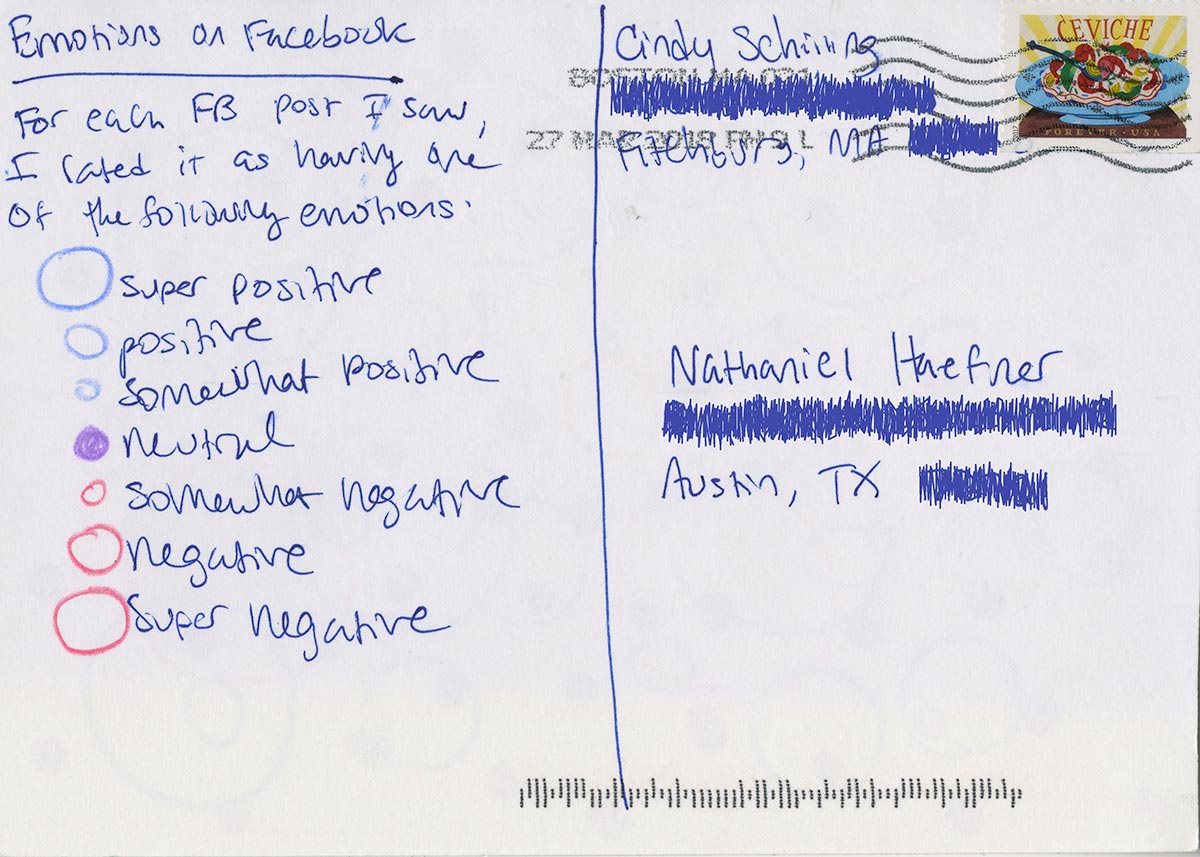 Emotions on Facebook
For each FB post I saw,
I rated it as having one
of the following emotions:
super positive
positive
somewhat positive
neutral
somewhat negative
negative
super negative
Cindy
Fitchburg, MA
BOSTON MA 021
27 MAR 2018 PM 9 L
CEVICHE
FOREVER · USA
Nathaniel Haefner
Austin, TX